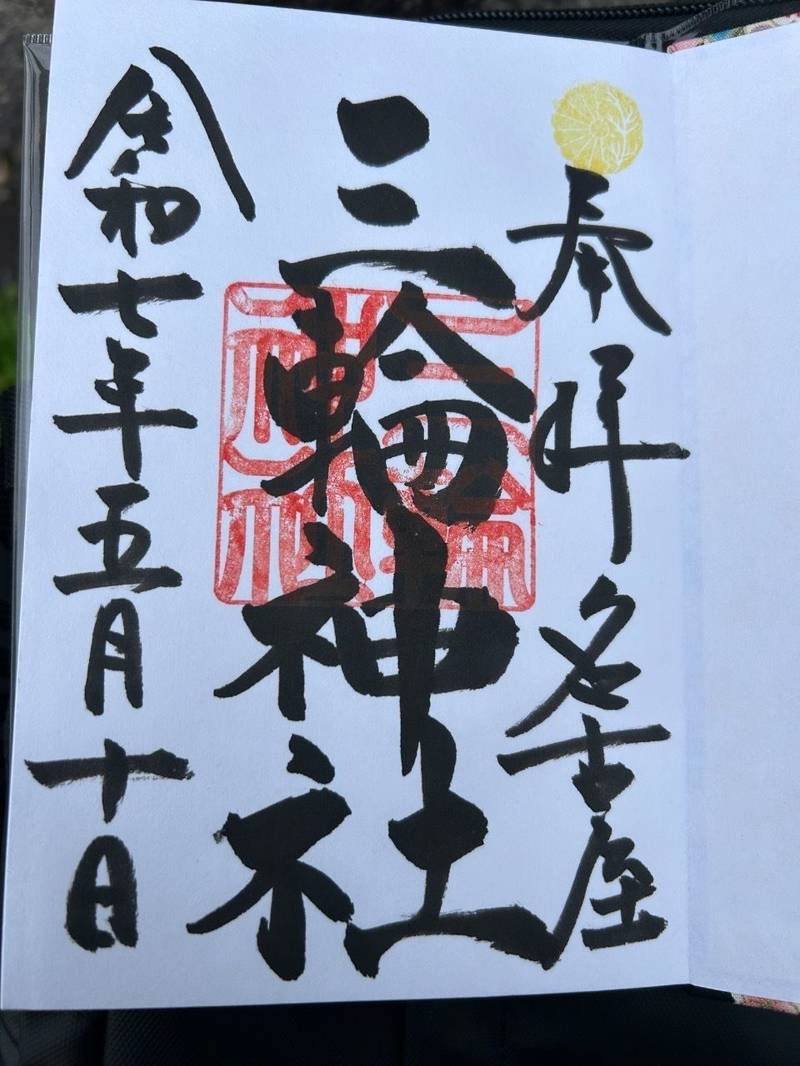 奉拝 名古屋
三輪神社
三輪神社
令和七年五月十日